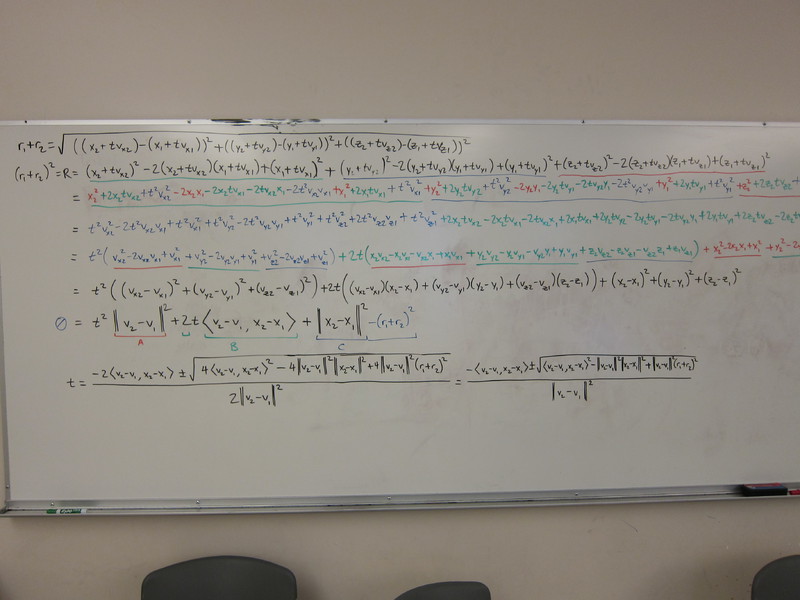 r₁+r₂ = √(((x₂+tvₓ₂)-(x₁+tvₓ₁))²+((y₂+tv_y2)-(y₁+tv_y1))²+((z₂+tv_z2)-(z₁+tv_z1))²
(r₁+r₂)² = R = (x₂+tvₓ₂)²-2(x₂+tvₓ₂)(x₁+tvₓ₁)+(x₁+tvₓ₁)²+(y₂+tv_y2)²-2(y₂+tv_y2)(y₁+tv_y1)+(y₁+tv_y1)²+(z₂+tv_z2)²-2(z₂+tv_z2)(z₁+tv_z1)+(z₁+tv_z1)²
= x₂²+2x₂tvₓ₂+t²vₓ₂²-2x₂x₁-2x₂tvₓ₁-2tvₓ₂x₁-2t²vₓ₂vₓ₁+x₁²+2x₁tvₓ₁+t²vₓ₁²+y₂²+2y₂tv_y2+t²v_y2²-2y₂y₁-2y₂tv_y1-2tv_y2y₁-2t²v_y2v_y1+y₁²+2y₁tv_y1+t²v_y1²+z₂²+2z₂tv_z2
= t²vₓ₂²-2t²vₓ₂vₓ₁+t²vₓ₁²+t²v_y2²-2t²v_y2v_y1+t²v_y1²+t²v_z2²+2t²v_z2v_z1+t²v_z1²+2x₂tvₓ₂-2x₂tvₓ₁-2tvₓ₂x₁+2x₁tvₓ₁+2y₂tv_y2-2y₂tv_y1-2tv_y2y₁+2y₁tv_y1+2z₂tv_z2
= t²(vₓ₂²-2vₓ₂vₓ₁+vₓ₁²+v_y2²-2v_y2v_y1+v_y1²+v_z2²-2v_z2v_z1+v_z1²)+2t(x₂vₓ₂-x₂vₓ₁-vₓ₂x₁+x₁vₓ₁+y₂v_y2-y₂v_y1-v_y2y₁+y₁v_y1+z₂v_z2-z₂v_z1-v_z2z₁+z₁v_z1)+x₂²-2x₂x₁+x₁²
= t²((vₓ₂-vₓ₁)²+(v_y2-v_y1)²+(v_z2-v_z1)²)+2t((vₓ₂-vₓ₁)(x₂-x₁)+(v_y2-v_y1)(y₂-y₁)+(v_z2-v_z1)(z₂-z₁))+(x₂-x₁)²+(y₂-y₁)²+(z₂-z₁)²
0 = t²‖v₂-v₁‖²+2t⟨v₂-v₁, x₂-x₁⟩+‖x₂-x₁‖²-(r₁+r₂)²
A B C
t = (-2⟨v₂-v₁, x₂-x₁⟩±√(4⟨v₂-v₁, x₂-x₁⟩²-4‖v₂-v₁‖²‖x₂-x₁‖²+4‖v₂-v₁‖²(r₁+r₂)²))/(2‖v₂-v₁‖²) = (-⟨v₂-v₁, x₂-x₁⟩±√(⟨v₂-v₁, x₂-x₁⟩²-‖v₂-v₁‖²‖x₂-x₁‖²+‖v₂-v₁‖²(r₁+r₂)²))/‖v₂-v₁‖²